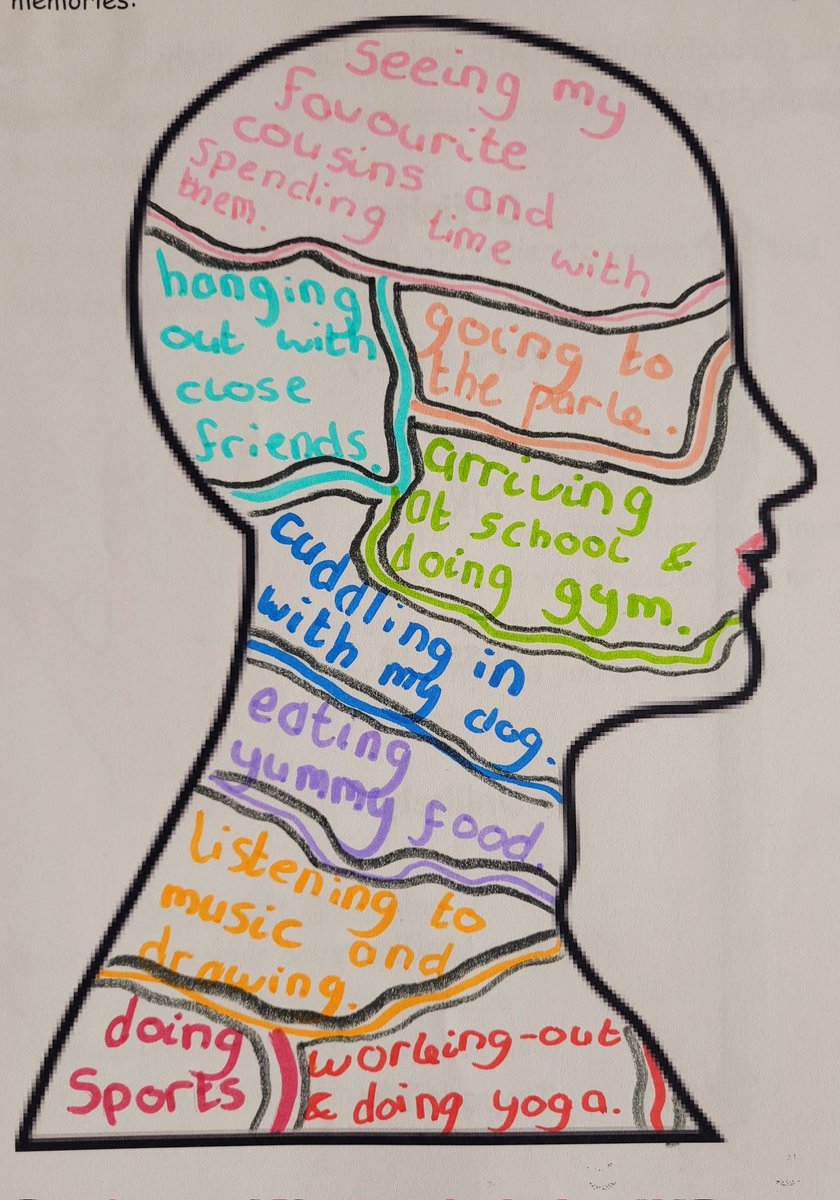 memories.
seeing my
favourite
cousins and
spending time with
them.
hanging
out with
close
friends.
going to
the park.
arriving
at school &
doing gym.
cuddling in
with my dog.
eating
yummy food.
listening to
music and
drawing.
doing
Sports
working-out
& doing yoga.